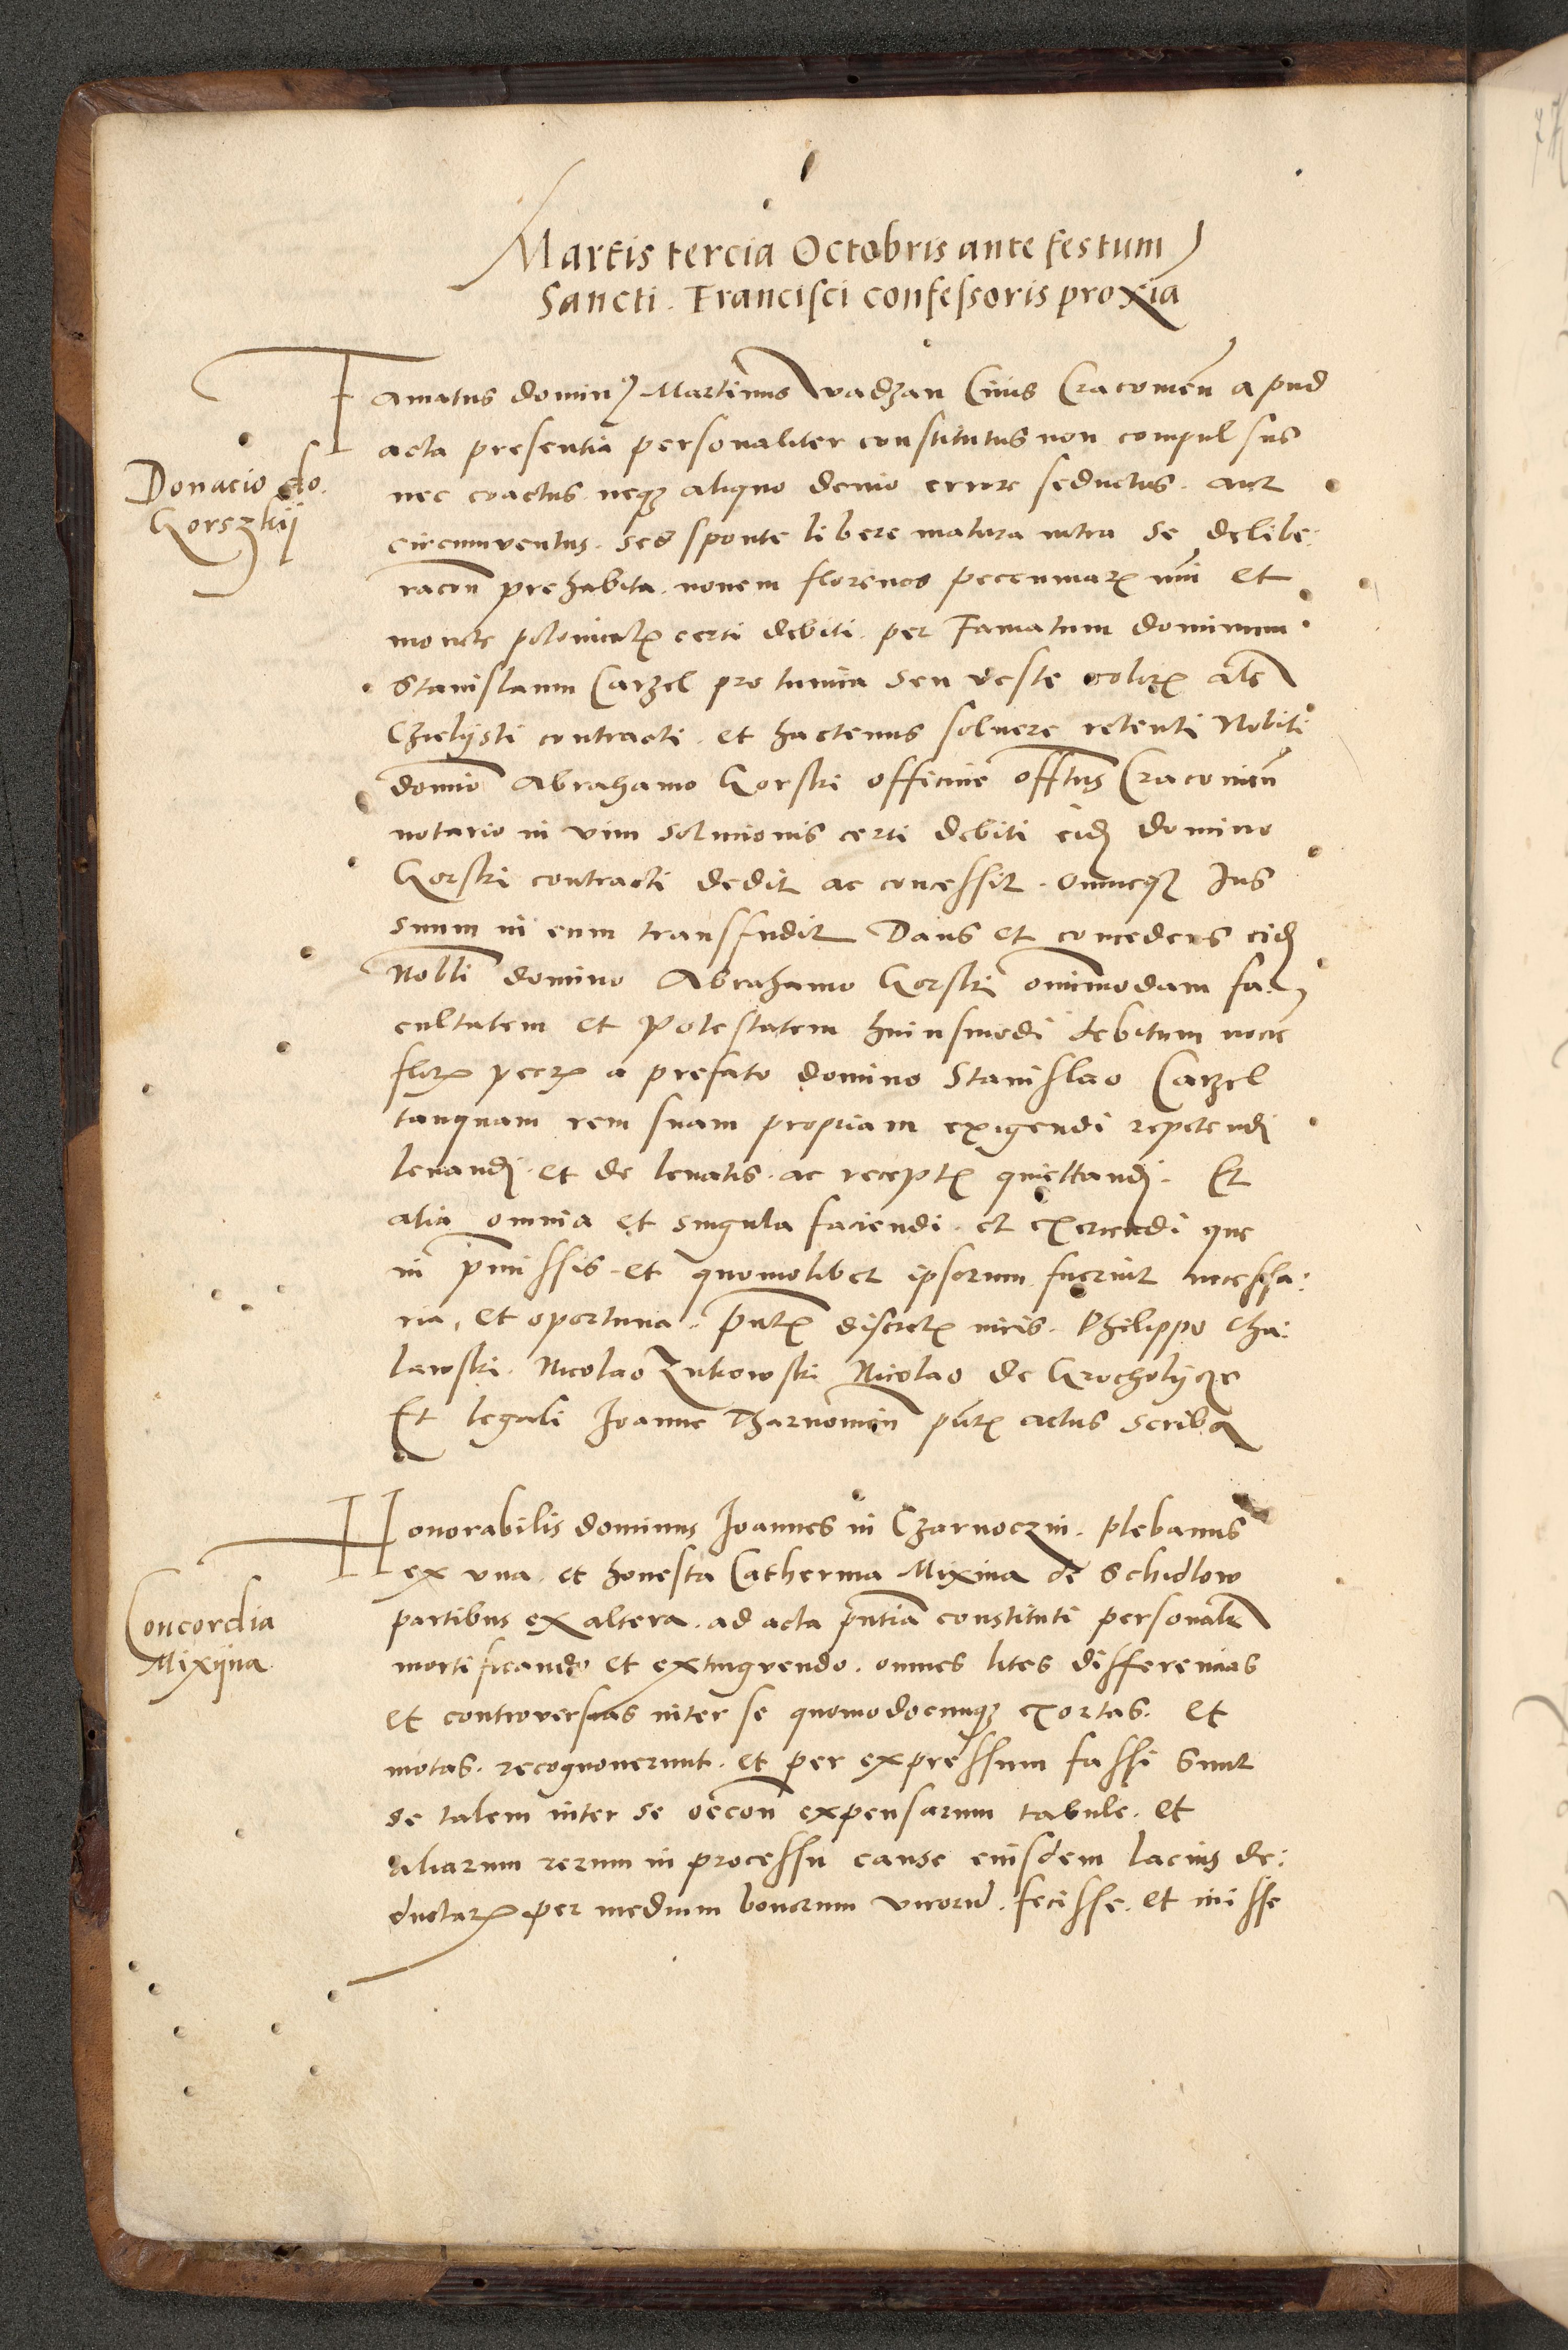 Martis tercia Octobris ante festum
Sancti. Francisci confessoris proxia
Famatus dominus Martinus Vadzan Civis Cracovien apud
acta presentia personaliter constitutus non compulsus
Donacio do.
Gorszkij
nec coactus neque aliquo devio errore seductus. aut
circumventus. sed sponte libere matura intra se delibe:
racon prehabita. novem florenos peccuniarum num et
monete polonicalis certi debiti. per Famatum dominum
Stanislaum Carzel pro tunica seu veste coloris als
Czelijsti contracti. et hactenus solvere retenti Nobili
domino Abrahamo Gorski officine offtus Cracovien
notario in vim solucionis certi debiti eid domino
Gorski contracti dedit ac concessit. omneque Ius
suum in eum transfudit Dans et concedens eid
Nobli domino Abrahamo Gorski omnimodam fa
cultatem et potestatem huiusmodi debitum novem
flor pecc a prefato domino Stanislao Carzel
tanquam rem suam propriam exigendi repetendi
levandi et de levatis. ac receptis quiettandi. Et
alia omnia et singula faciendi. et exercendi que
in pmissis. et quomolibet ipsorum fuerint necessa:
ria, et oportuna. pntibus discretis viris. Philippo Cha:
lawski. Nicolao Zukowski Nicolao de Grocholijcze
Et legali Joanne Tharnowien pntis actus scriba
Honorabilis dominus Joannes in Czarnoczin. plebanus
ex una. et honesta Catherina Mixina de Schidlow
Concordia
Mixijna
partibus ex altera. ad acta pntia constituti personaliter
mortificando et extinguendo. omnes lites differencias
et controversias inter se quomodocunque exortas. et
motas. recognoverunt. et per expressum fassi sunt
se talem inter se oecon expensarum tabule. et
aliarum rerum in processu cause eiusdem lacius de:
ductarum per medium bonorum virorum. fecisse. et inisse